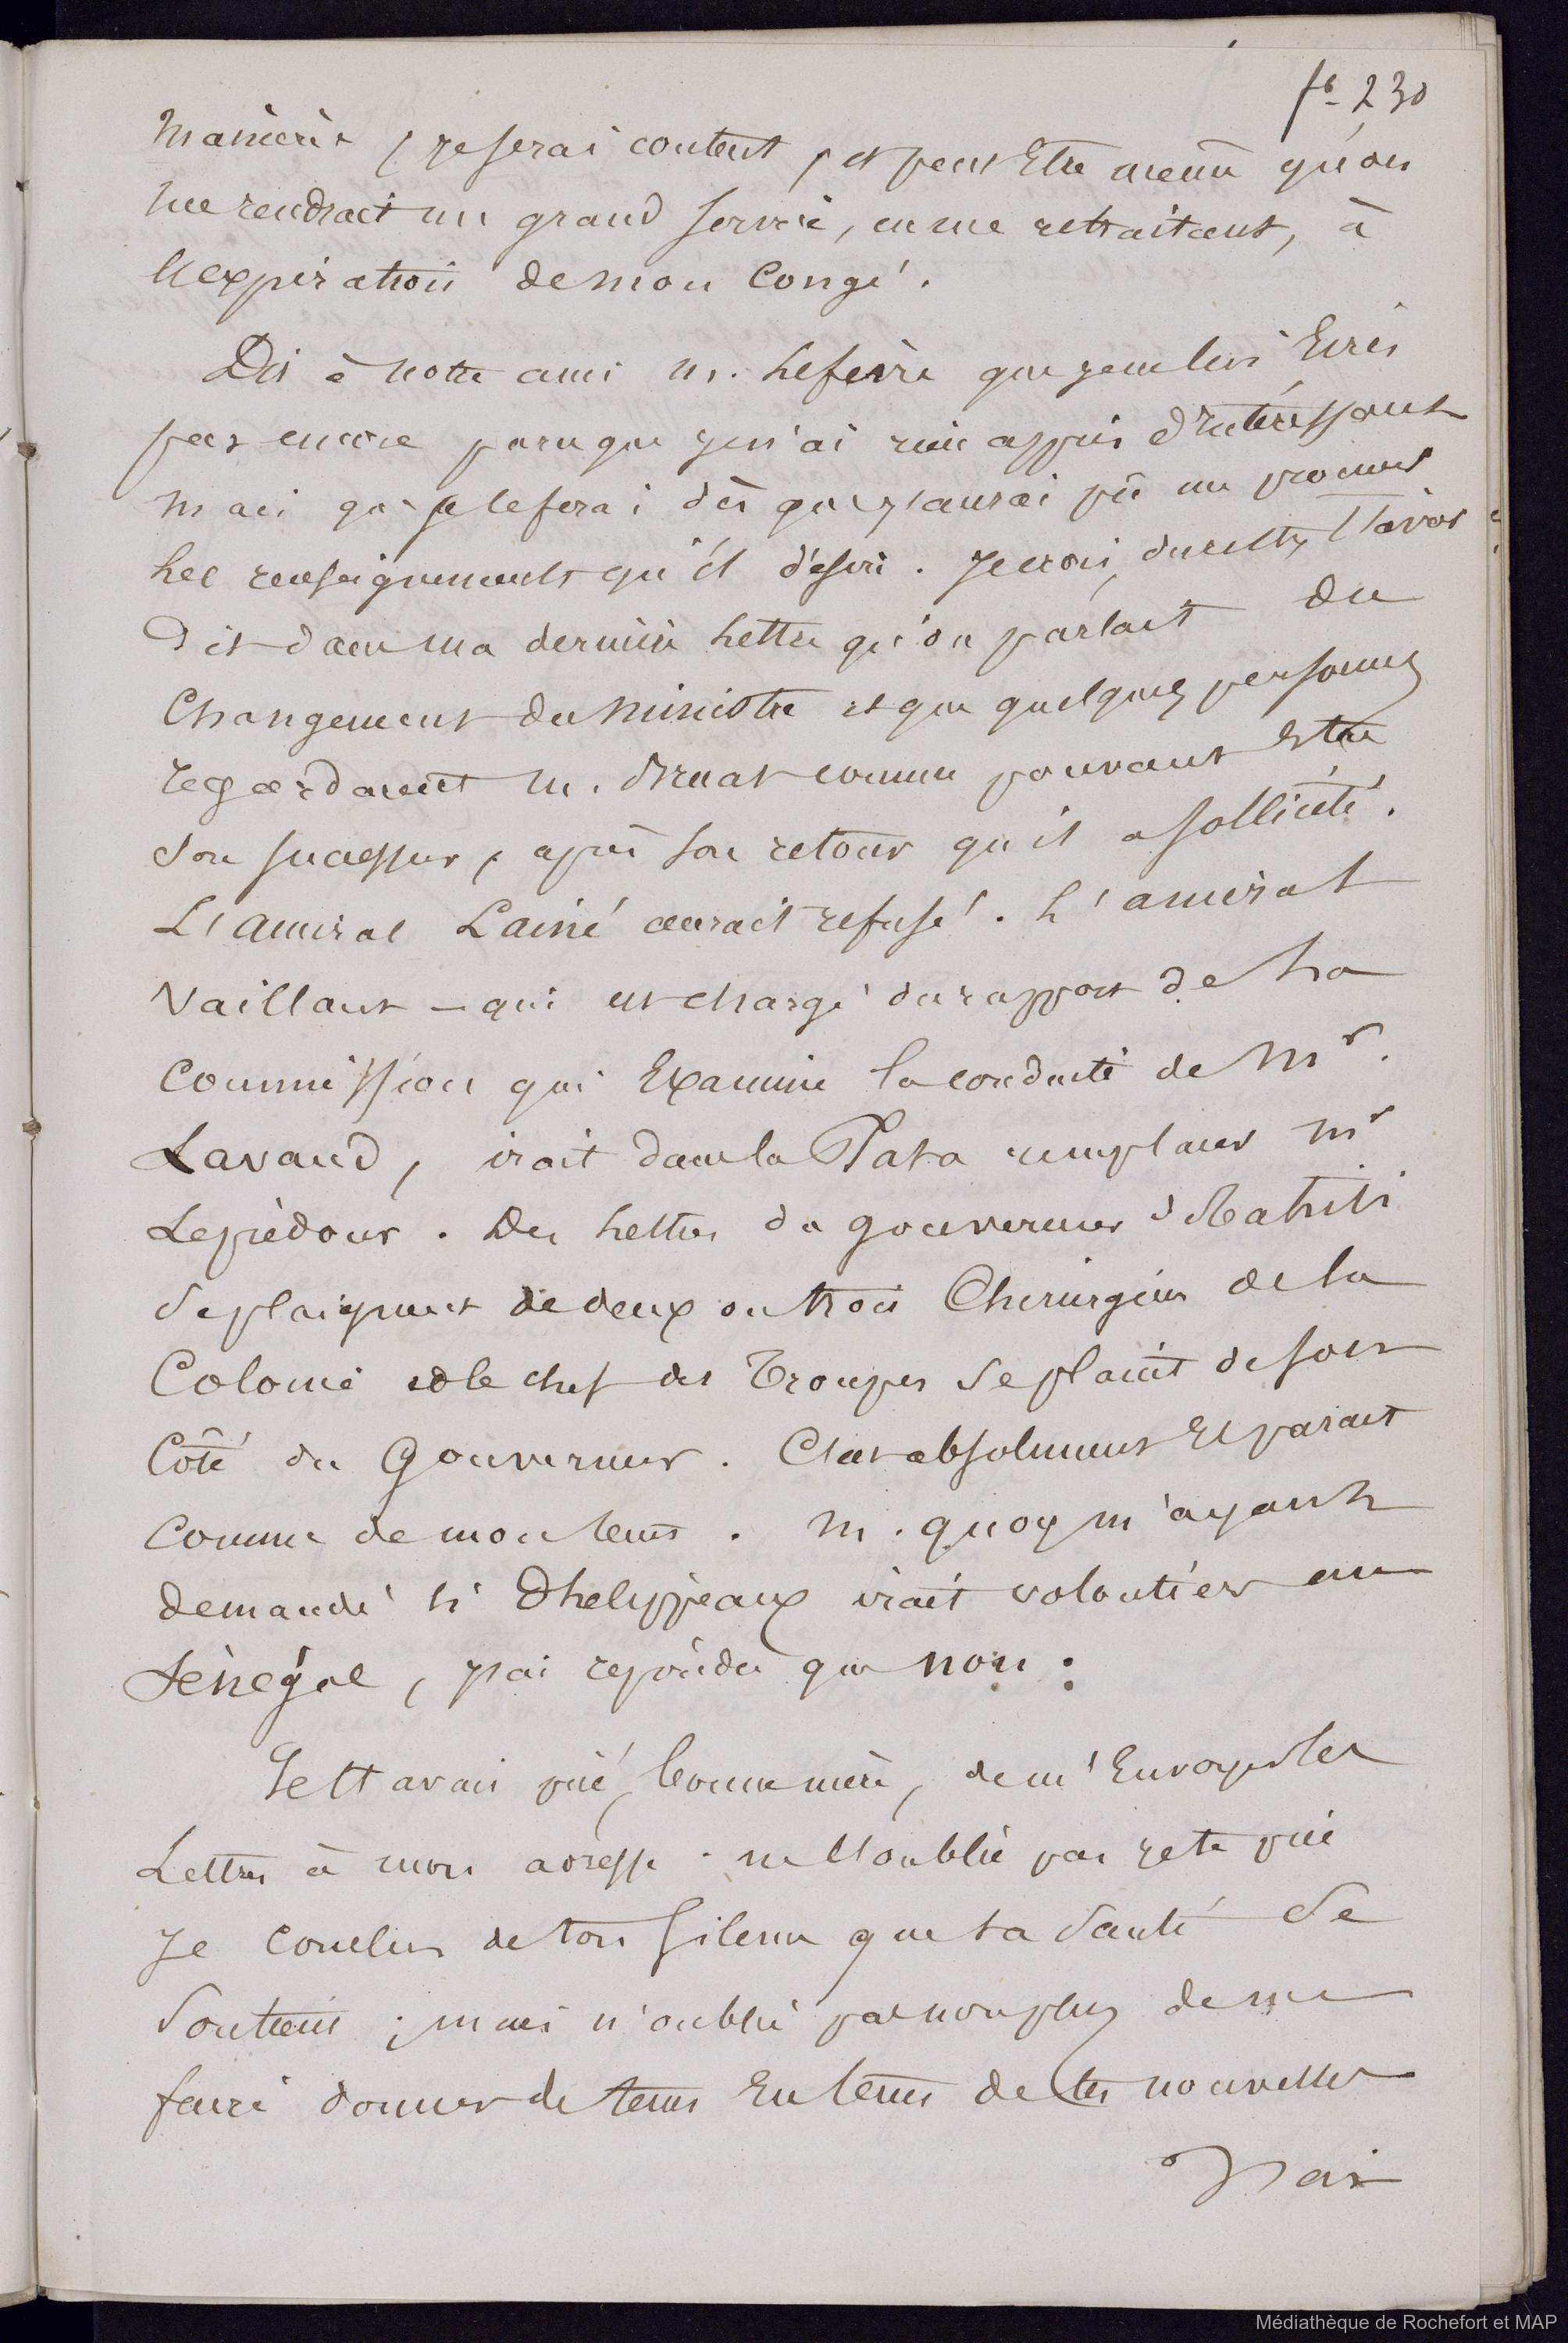 fo. 230
manière, je serai content, et peut Etre même qu'on
me rendrait un grand service, en me retraitant, à
l'expiration de mon Congé.
Dis à notre ami M. Lefèvre que je ne lui Ecris
pas encore parce que je n'ai rien appris d'intéressant
mais que je le ferai dès que j'aurai pû me procurer
les renseignements qu'il désire. Je crois, du reste, t'avoir
dit dans ma dernière lettre qu'on parlait du
Changement du ministre et que quelques personnes
regardaient M. Bruat comme pouvant Etre
son successeur, après son retour qu'il a sollicité.
L'amiral Lainé aurait refusé. L'amiral
Vaillant – qui est chargé du rapport de la
Commission qui Examine la conduite de Mr.
Lavaud, irait dans la Plata remplacer Mr
Leprédour. Des lettres du gouverneur d'Otahiti
se plaignent de deux ou trois Chirurgiens de la
Colonie et le chef des Troupes se plaint de son
Côté du Gouverneur. C'est absolument, Il parait
Comme de mon tems. M. quoy m'ayant
demandé si Phelyppeaux irait volontiers au
Sénégal, j'ai répondu que non :
Je t'avais prié, bonne mère, de m'Envoyer les
Lettres à mon adresse. ne l'oublie pas je te prie
Je Conclus de ton silence que ta santé Se
Soutient ; mais n'oublie pas non plus de me
faire donner de tems En tems de tes nouvelles
J'ai
Médiathèque de Rochefort et MAP